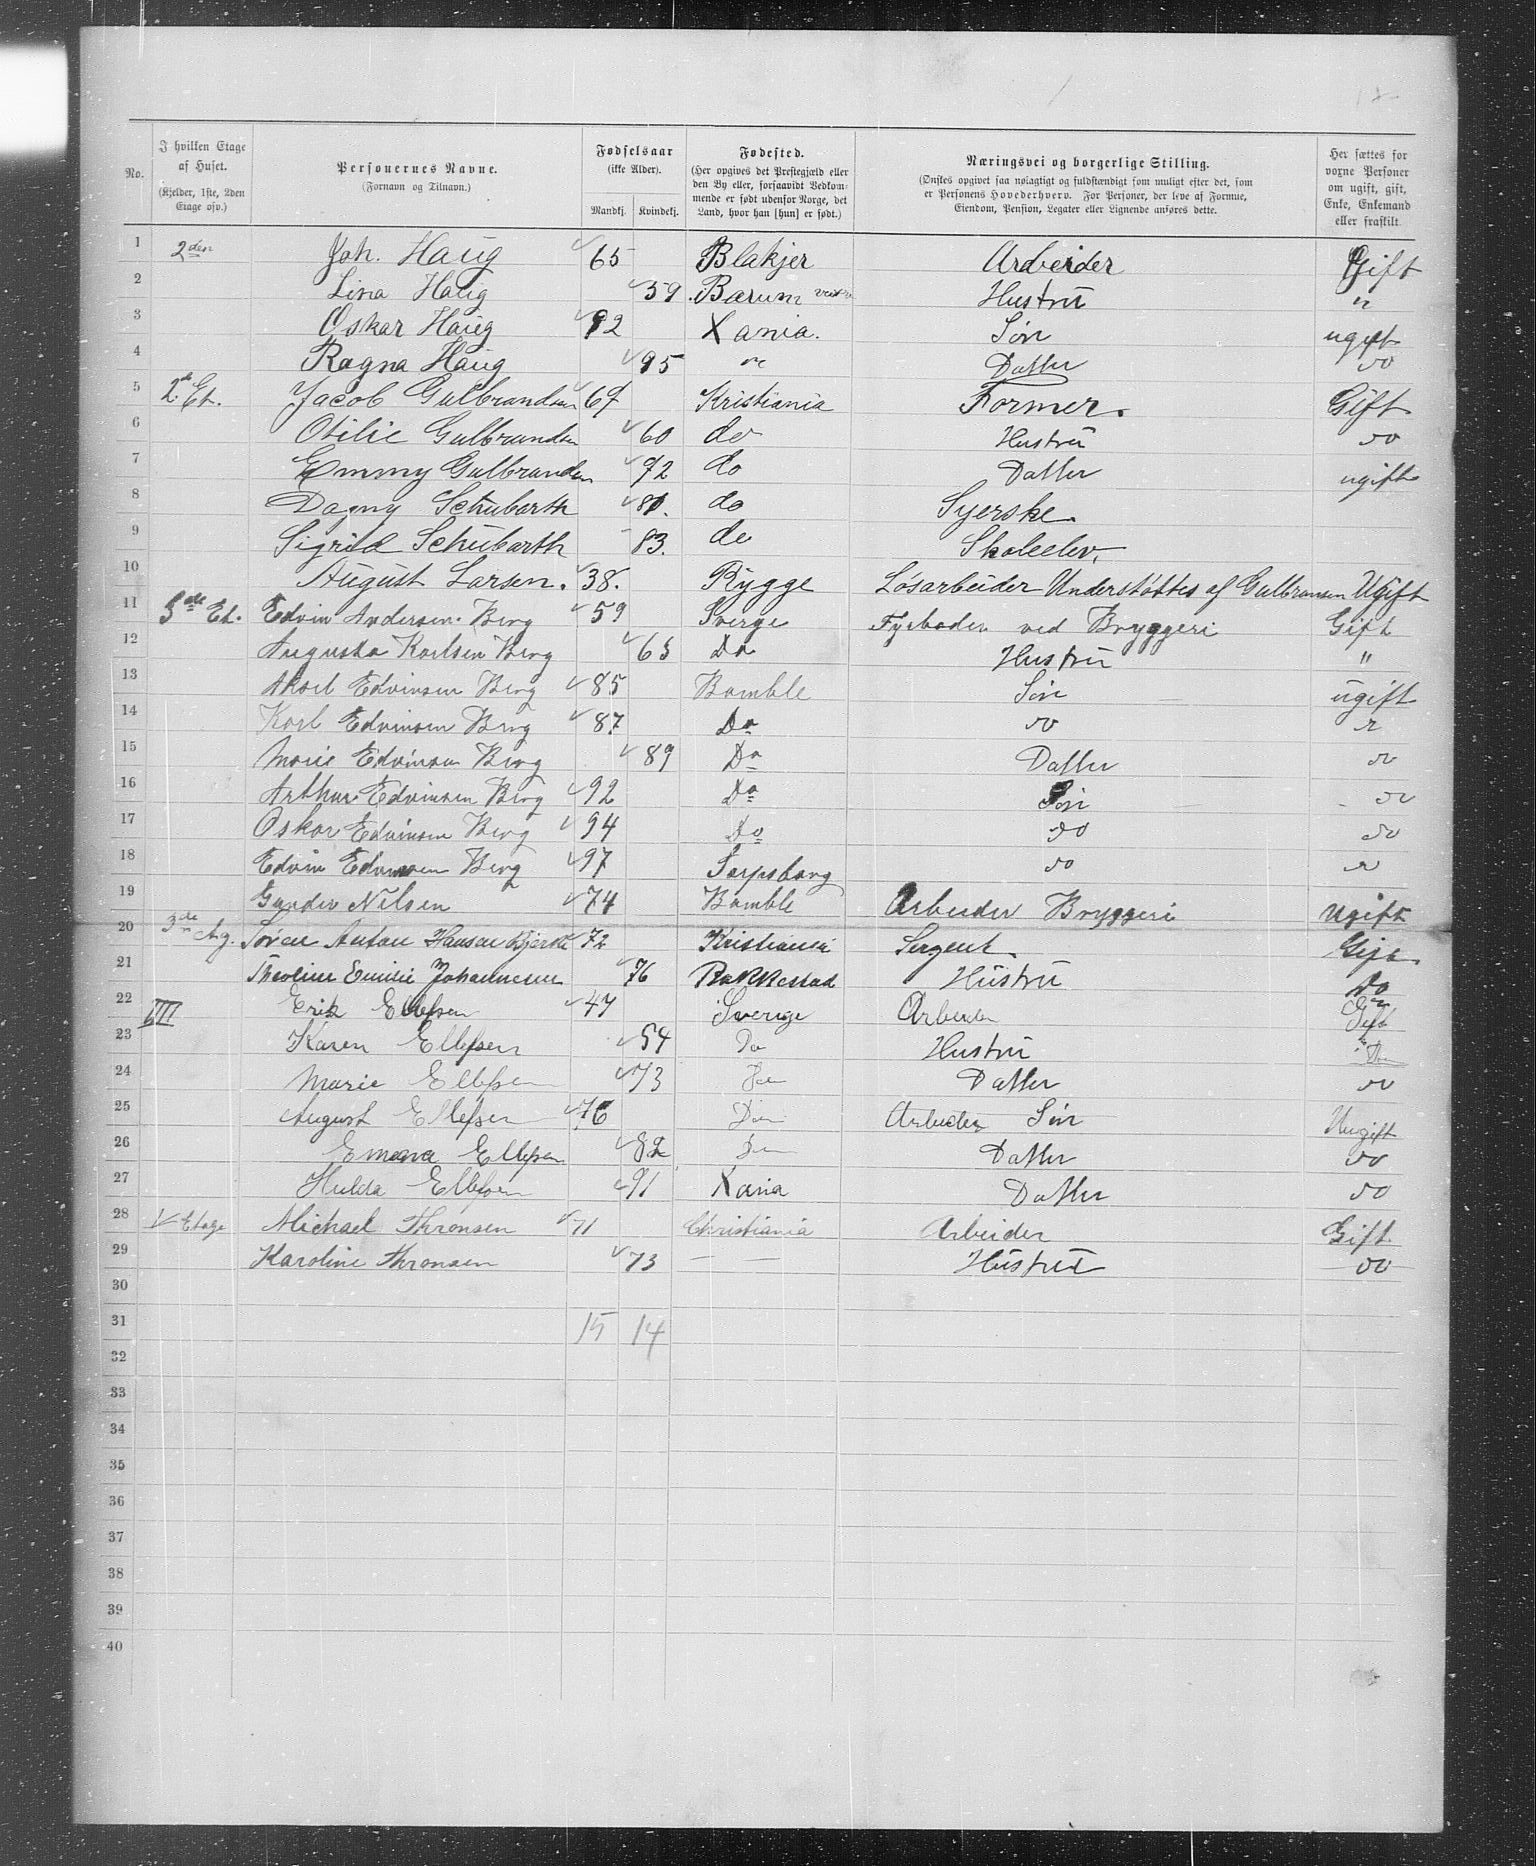 No. | I hvilken Etage af Huset. (Kjelder, 1ste, 2den Etage osv.) | Personernes Navne. (Fornavn og Tilnavn.) | Fødselsaar (ikke Alder). Mandkj. | Kvindekj. | Fødested. (Her opgives det Prestegjæld eller den By eller, forsaavidt Vedkommende er født udenfor Norge, det Land, hvor han [hun] er født.) | Næringsvei og borgerlige Stilling. (Ønskes opgivet saa nøiagtigt og fuldstændigt som muligt efter det, som er Personens Hovederhverv. For Personer, der leve af Formue, Eiendom, Pension, Legater eller Lignende anføres dette. | Her sættes for voxne Personer om ugift, gift, Enke, Enkemand eller fraskilt.
1 2den Joh. Haug 65 Blakjer Arbeider Gift
2 Lina Haug 59 Bærum Hustru "
3 Oskar Haug 92 Xania. Søn ugift
4 Ragna Haug 95 " Datter do
5 2d Et. Jacob Gulbrandsen 67 Kristiania Former. Gift
6 Otilie Gulbrandsen 60 do Hustru do
7 Emmy Gulbrandsen 92 do Datter ugift
8 Dagny Schubarth 81. do Syerske.
9 Sigrid Schubarth 83. do Skoleelev,
10 August Larsen. 38. Rygge Løsarbeider Understøttes af Gulbransen Ugift
11 3de Et. Edvin Andersen Berg 59 Sverge Fyrbøder ved Bryggeri Gift
12 Augusta Karlsen Berg 65 Do Hustru "
13 Aksel Edvinsen Berg 85 Bamble Søn ugift
14 Karl Edvinsen Berg 87 Do do
15 Marie Edvinsen Berg 89 Do Datter do
16 Arthur Edvinsen Berg 92 Do Søn do
17 Oskar Edvinsen Berg 94 Do do do
18 Edvin Edvinsen Berg 97 Sarpsborg do do
19 Gunder Nilsen 74 Bamble Arbeider Bryggeri Ugift
20 3de Søren Anton Hansen 72 Kristiania Sergent. Gift.
21 Theoline Emilie Johannesen 76 Rakkestad Hustru Do
22 III Erik Ellefsen 47 Sverige Arbeider Gift
23 Karen Ellefsen 54 Do Hustru Do
24 Marie Ellefsen 73 Do Datter do
25 August Ellefsen 76 Do Arbeider Søn Uugift
26 Emma Ellefsen 82 Do Datter do
27 Hulda Ellefsen 91 Xania Datter do
28 V Etage Michael Thronsen 71 Christiania Arbeider Gift.
29 Karoline Thronsen 73 — — Hustru do
30
31 15 14
32
33
34
35
36
37
38
39
40